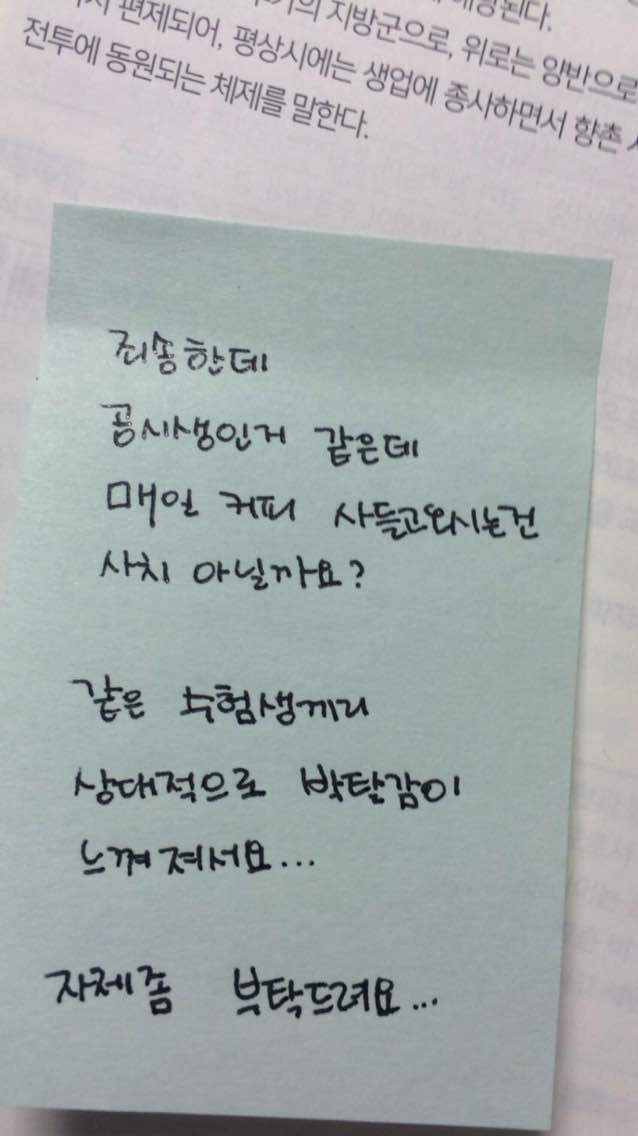 해당된다.
의 지방군으로, 위로는 양반으로
편제되어, 평상시에는 생업에 종사하면서 향촌
전투에 동원되는 체제를 말한다.
죄송한데
공시생인거 같은데
매일 커피 사들고와시는건
사치 아닐까요?
같은 수험생끼리
상대적으로 박탈감이
느껴져서요...
자제좀 부탁드려요...